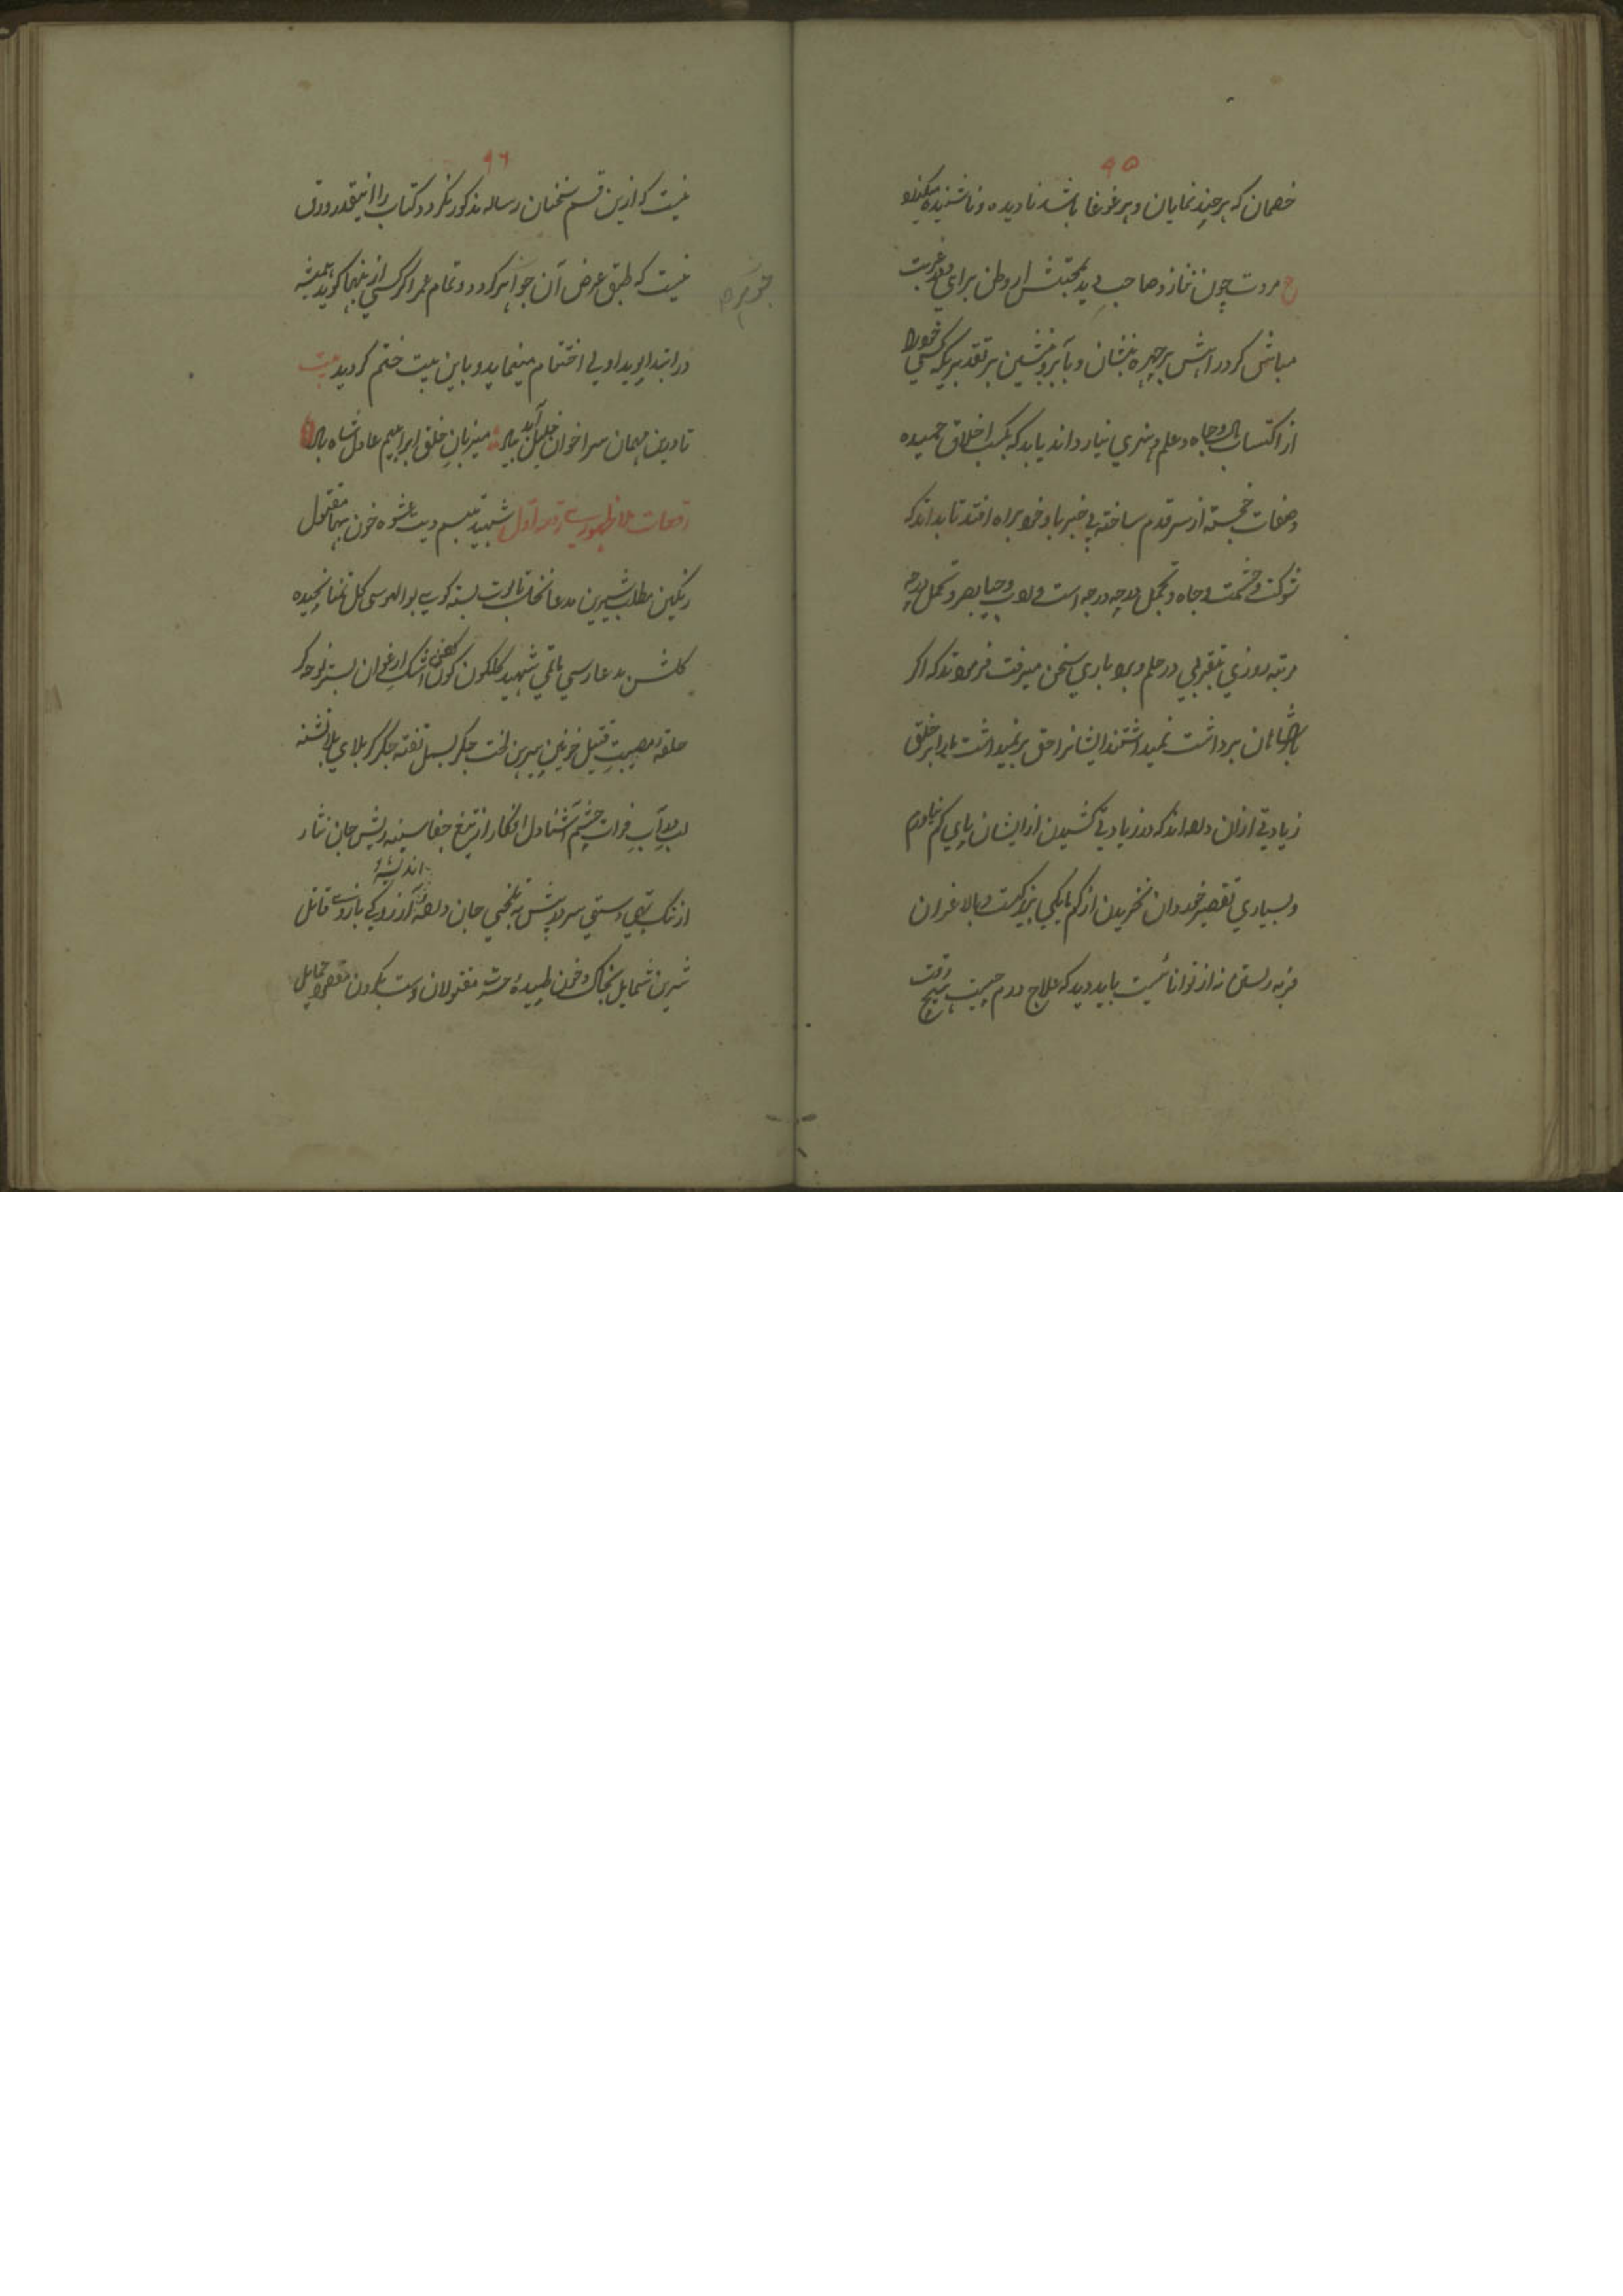 ۹۵
خصمان که هر چند نمایان و هر غوغا باشد نادیده و ناشنیده
مروت چون نماز و صاحب محبتش از وطن برای غربت
مباش کرد راهش بر چهره بنشان و بآبرو بنشین بر تقدیریکه کسی خود را
از اکتساب مال و جاه و علم و هنری نیاز داند باید که بکسب اخلاق حمیده
و صفات خجسته از سر قدم ساخته بی خبر باد خود براه افتد تا بداند که
شوکت و حشمت و جاه و تجمل درچه درجه است و ادب و حیا و صبر و تحمل درچه
مرتبه روزی بتقریبی در حلم و بردباری سخن میرفت فرمودند که اگر
پادشاهان برداشت نمیداشتند ایشانرا حق برنمیداشت بار بر خلق
زیادتی ازان داده اند که در زیادتی کشیدن از ایشان پای کم نیاورم
و بسیاری تقصیر خردان بخریدن از کم مایگی بزرگیست و بالاغران
فربه دستی نه از توانائیست باید دید که علاج ورم چیست هیچ وقت
۹۶
نیست که ازین قسم سخنان رساله مذکور نگردد و کتاب را اینقدر ورق
نیست که طبق عرض آن جواهر گردد و تمام عمر اگر کسی ازینها گوید همیشه
در ابتدا بود اولی اختتام مینماید و باین بیت ختم گردید بیت
تا درین مهمان سرا خوان خلیل آید بیاد میزبان خلق ابراهیم عادل شاه باد
رقعات ملا ظهوری رقعه اول شهید تبسم دیت عشوه خون بها مقتول
رنگین مطلب شیرین مدعا نخل تابوت بسته کوی بوالهوسی گل تمنا نچیده
گلشن مدعا رسی ماتمی شهید گلگون کفن اشک ارغوان بستر نوحه گر
حلقه مصیبت قتیل خونین پیرهن لخت جگر بسمل تفته جگر کربلای بلا تشنه
لب آب فرات چشم آشنا دل افگار از تیغ جفا سینه ریش جان نثار
اندیشه
از ننگ تهی دستی سر در پیش به تلخی جان داده آرزوی بازوی قاتل
شیرین شمایل بخاک و خون طپیده حسرت مقتولان دست بگردن مقصود حمایل